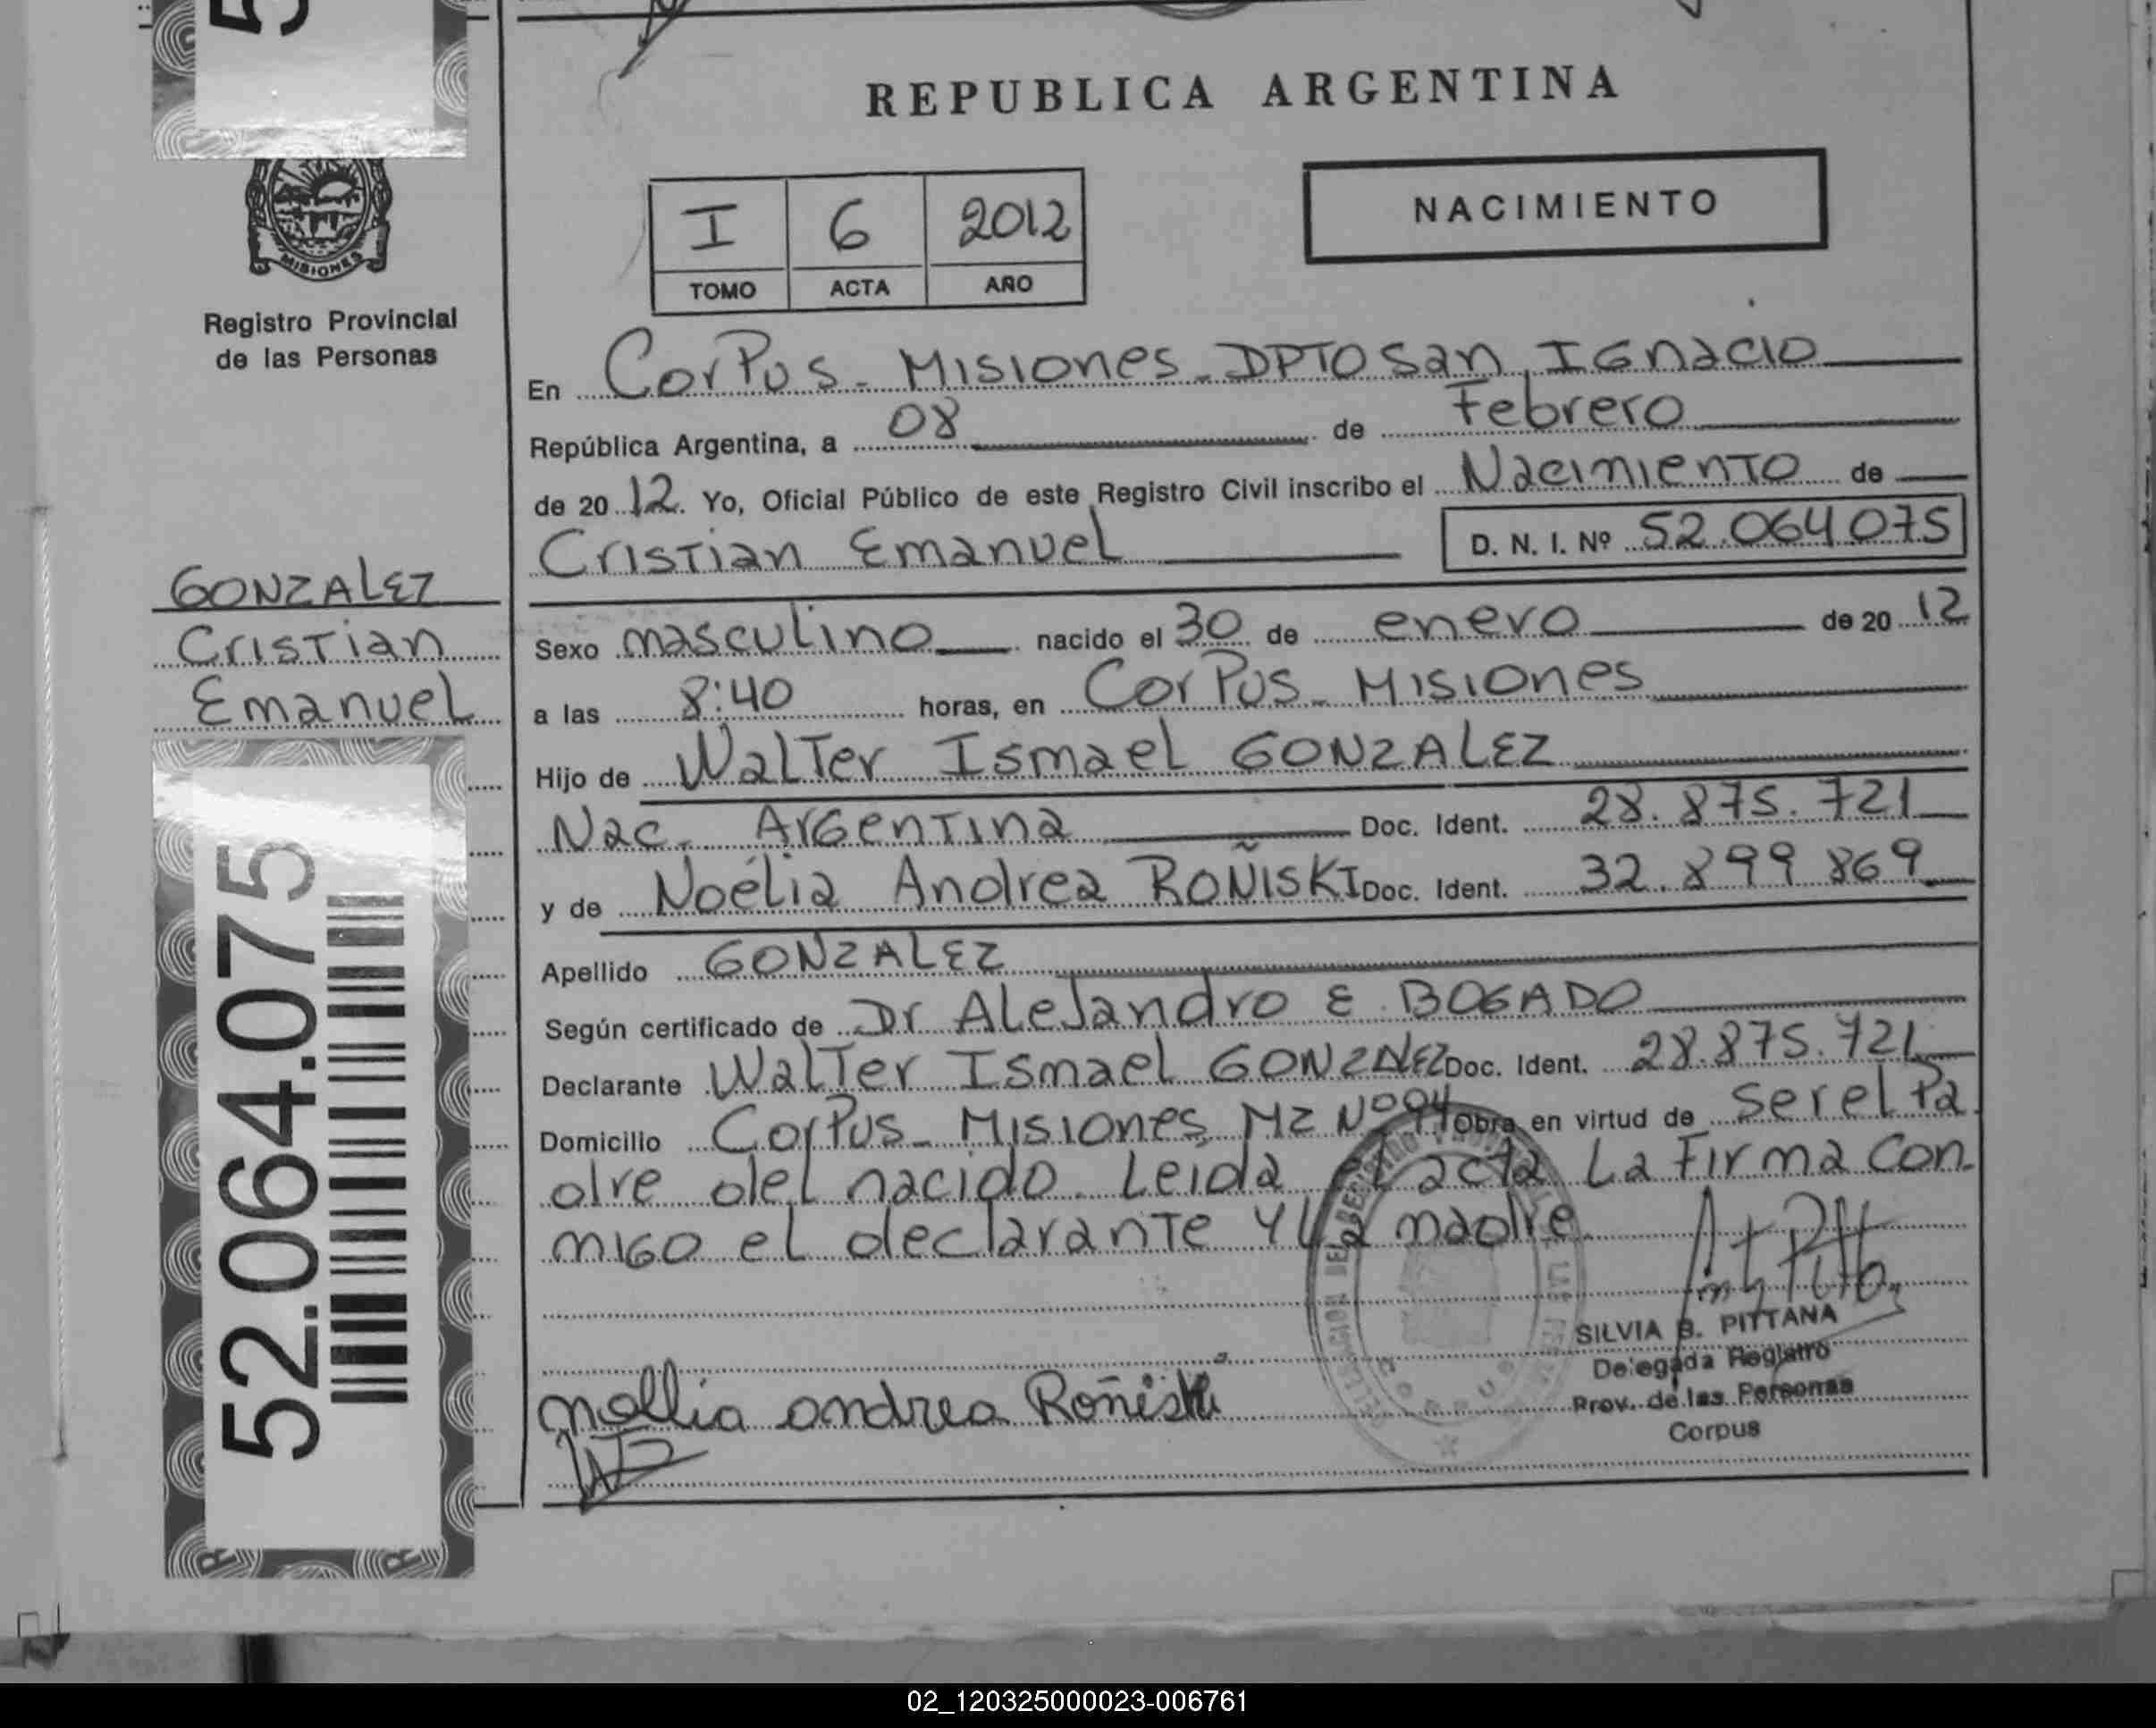 REPUBLICA ARGENTINA
NACIMIENTO
I 6 2012
TOMO ACTA AÑO
MISIONES
Registro Provincial
de las Personas
En Corpus - Misiones - DPTO San Ignacio
República Argentina, a 08 de Febrero
de 20 12. Yo, Oficial Público de este Registro Civil inscribo el Nacimiento de
Cristian Emanuel D. N. I. Nº 52.064.075
GONZALEZ
Cristian
Emanuel
Sexo masculino nacido el 30 de enero de 20 12
a las 8:40 horas, en Corpus - Misiones
Hijo de Walter Ismael GONZALEZ
Nac. Argentina Doc. Ident. 28.875.721
y de Noélia Andrea ROÑISKI Doc. Ident. 32.899869
Apellido GONZALEZ
Según certificado de Dr Alejandro E. BOGADO
Declarante Walter Ismael GONZALEZ Doc. Ident. 28.875.721
Domicilio Corpus - Misiones Mz Nº 94 Obra en virtud de ser el Pa
dre del nacido. Leída el acta La Firma Con
migo el declarante y La madre
52.064.075
SILVIA B. PITTANA
Delegada Registro
Prov. de las Personas
Corpus
Nollia andrea Roñiski
02_120325000023-006761